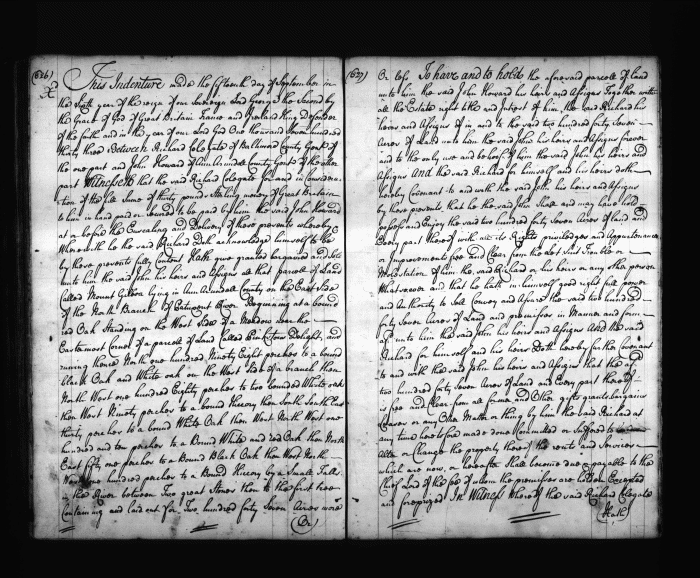 (626)
This Indenture made the fifteenth day of September in
the Sixth year of the reign of our Sovereign Lord George the Second by
the Grace of God of Great Britain France and Ireland King Defender
of the faith and in the year of our Lord God One thousand Seven hundred
thirty three Between Richard Colegate of Baltimore County Gent of the
one part and John Howard of Ann Arundell County Gent of the other
part Witnesseth that the said Richard Colegate for and in Considera
tion of the full sume of thirty pounds Sterling money of Great Britain
to him in hand paid or secured to be paid by him the said John Howard
at or before the Ensealing and Delivery of these presents whereof &
Wherewith he the said Richard Doth acknowledge himself to be
by these presents fully Content Hath give granted bargained and Sold
unto him the said John his heirs and Assigns all that parcell of Land
Called Mount Gilboa lying in Ann Arundell County on the East Side
of the North Branch of Patuxent River Beginning at a bound
red Oak Standing on the West Side of a Meadow near the
Eastermost Corner of a parcell of Land Called Delight, and
runing thence North one hundred Ninety Eight perches to a bound
black Oak and White oak on the West Side of a branch then
North West one hundred Eighty perches to two bounded White oaks
then West Ninety perches to a bound Hiccory then South South East
thirty perches to a bound White Oak then West North West one
hundred and ten perches to a Bound White and red Oak then North
East fifty one perches to a Bound Black Oak then West North
West one hundred perches to a Bound Hiccory by a Small Falls
in the River between Two great Stones then to the first tree
Containing and laid out for Two hundred forty Seven Acres more
(Or)
(627)
Or less To have and to hold the aforesaid parcell of Land
unto him the said John Howard his heirs and Assigns Together with
all the Estate right title and Interest of him the said Richard his
heirs and Assigns of in and to the said two hundred forty Seven
Acres of Land unto him the said John his heirs and Assigns forever
and to the only use and behoof of him the said John his heirs and
Assigns And the said Richard for himself and his heirs doth
hereby Covenant to and with the said John his heirs and Assigns
by these presents, that he the said John Shall and may have hold
possess and Enjoy the said two hundred forty Seven Acres of land and
Every part thereof with all its Rights priviledges and Appurtenances
or Improvements free and Clear from the Let Suit Trouble or
Molestation of him the said Richard or his heirs or any other person
Whatsoever and that he hath in himself good right full power
and Authority to Sell Convey and Assure the said two hundred
forty Seven Acres of Land and premisses in Manner and form
afd unto him the said John his heirs and Assigns And the said
Richard for himself and his heirs Doth hereby further Covenant
to and with the said John his heirs and Assigns that the afd
two hundred forty Seven Acres of Land and Every part thereof
is free and Clear from all former and Other gifts grants bargains
Leases or any Other Matter or thing by him the said Richard at
any time heretofore made done Committed or Suffered to
Alter or Change the property thereof the rents and Services
which are now, or hereafter Shall become due & payable to the
Chief Lord of the fee of whom the premisses are holden Excepted
and foreprized In Witness Whereof the said Richard Colegate
(Hath)